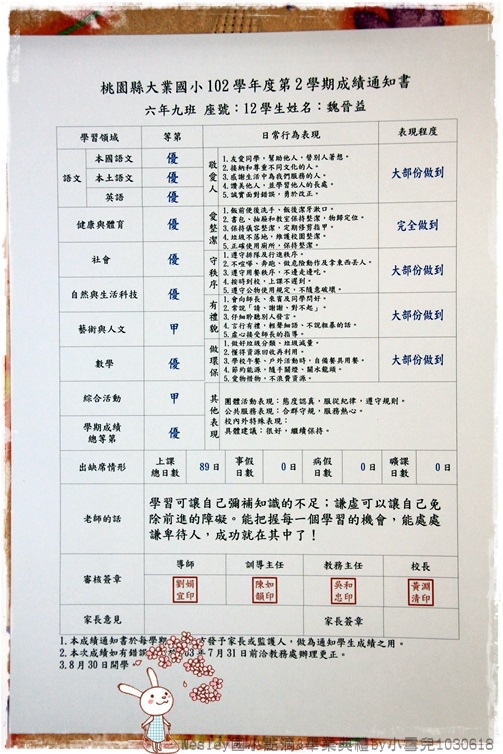 桃園縣大業國小102學年度第2學期成績通知書
六年九班 座號：12學生姓名：魏晉益
學習領域 等第 日常行為表現 表現程度
語文 本國語文 優
本土語文 優
英語 優
敬愛人
1.友愛同學，幫助他人，替別人著想。
2.接納和尊重不同文化的人。
3.感謝生活中為我們服務的人。
4.讚美他人，並學習他人的長處。
5.誠實面對錯誤，勇於改正。
大部份做到
健康與體育 優
愛整潔
1.飯前便後洗手、飯後潔牙漱口。
2.書包、抽屜和教室保持整潔，物歸定位。
3.保持儀容整潔，定期修剪指甲。
4.垃圾不落地，維護校園整潔。
5.正確使用廁所，保持整潔。
完全做到
社會 優
守秩序
1.遵守排隊及行進秩序。
2.不喧嘩、奔跑、做危險動作及拿東西丟人。
3.遵守用餐秩序，不邊走邊吃。
4.按時到校，上課不遲到。
5.遵守公物使用規定，不隨意破壞。
大部份做到
自然與生活科技 優
有禮貌
1.會向師長、來賓及同學問好。
2.常說「請、謝謝、對不起」。
3.仔細聆聽別人發言。
4.言行有禮，輕聲細語、不說粗暴的話。
5.虛心接受師長的指導。
大部份做到
藝術與人文 甲
數學 優
做環保
1.做好垃圾分類、垃圾減量。
2.懂得資源回收再利用。
3.學校午餐、戶外活動時，自備餐具用餐。
4.節約能源，隨手關燈、關水龍頭。
5.愛物惜物，不浪費資源。
大部份做到
綜合活動 甲
學期成績總等第 優
其他表現
團體活動表現：態度認真，服從紀律，遵守規則。
公共服務表現：合群守規，服務熱心。
校內外特殊表現：
具體建議：很好，繼續保持。
出缺席情形 上課總日數 89日 事假日數 0日 病假日數 0日 曠課日數 0日
老師的話
學習可讓自己彌補知識的不足；謙虛可以讓自己免
除前進的障礙。能把握每一個學習的機會，能處處
謙卑待人，成功就在其中了！
審核簽章 導師 訓導主任 教務主任 校長
劉娟宜印 陳如韻印 吳和忠印 黃淵清印
家長意見 家長簽章
1.本成績通知書於每學期 方發予家長或監護人，做為通知學生成績之用。
2.本次成績如有錯誤 03年7月31日前洽教務處辦理更正。
3.8月30日開學
Wesley國小點滴&畢業典禮by小雪兒1030618